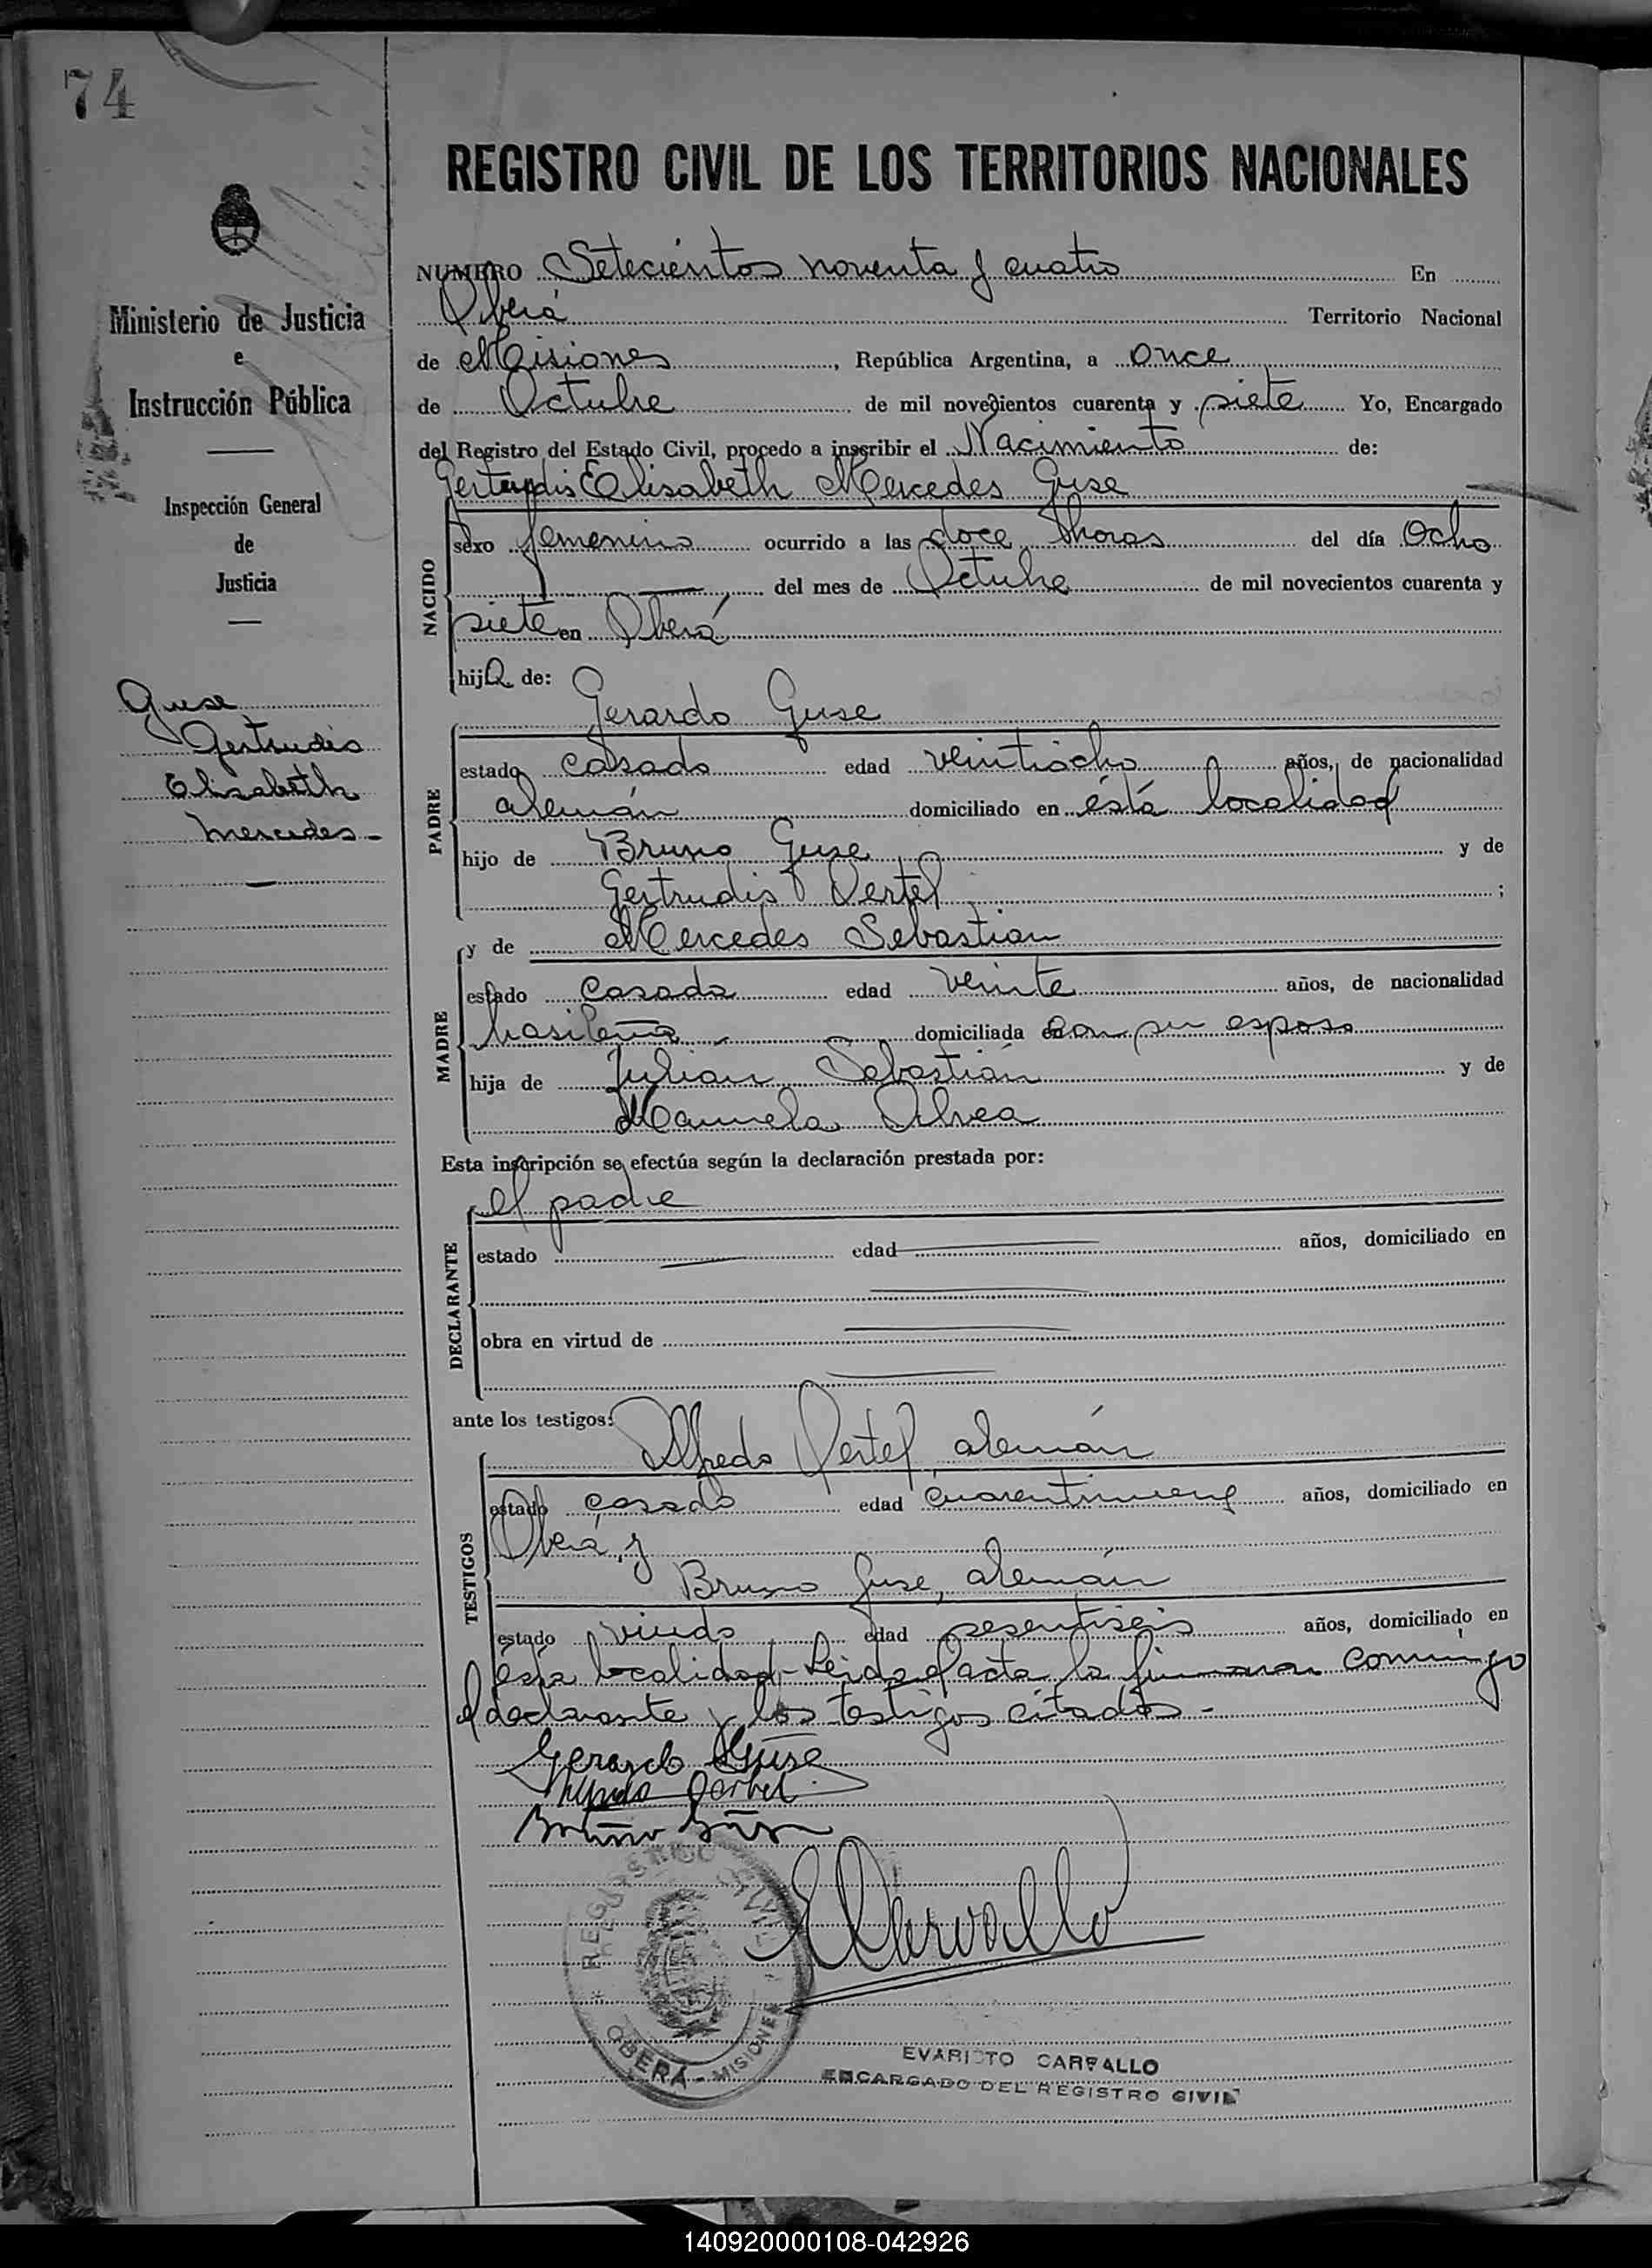 74
REGISTRO CIVIL DE LOS TERRITORIOS NACIONALES
Ministerio de Justicia
e
Instrucción Pública
Inspección General
de
Justicia
Guse
Gertrudis
Elisabeth
Mercedes -
NUMERO Setecientos noventa y cuatro En
Oberá Territorio Nacional
de Misiones, República Argentina, a once
de Octubre de mil novecientos cuarenta y siete Yo, Encargado
del Registro del Estado Civil, procedo a inscribir el Nacimiento de:
Gertrudis Elisabeth Mercedes Guse
NACIDO
sexo femenino ocurrido a las doce horas del día Ocho
del mes de Octubre de mil novecientos cuarenta y
siete en Oberá
hija de:
Gerardo Guse
PADRE
estado casado edad veintiocho años, de nacionalidad
alemán domiciliado en ésta localidad
hijo de Bruno Guse y de
Gertrudis Oertel ;
y de Mercedes Sebastian
MADRE
estado casada edad veinte años, de nacionalidad
brasileña domiciliada con su esposo
hija de Julián Sebastián y de
Manuela
Esta inscripción se efectúa según la declaración prestada por:
el padre
DECLARANTE
estado edad años, domiciliado en
obra en virtud de
ante los testigos:
Alfredo Oertel, alemán
TESTIGOS
estado casado edad cuarentinueve años, domiciliado en
Oberá, y
Bruno Guse, alemán
estado viudo edad sesentiseis años, domiciliado en
ésta localidad - Leida el acta la firmaron conmigo
el declarante y los testigos citados -
Gerardo Guse
Alfredo Oertel
Bruno Guse
ECarvallo
REGISTRO CIVIL
* OBERÁ - MISIONES
EVARISTO CARVALLO
ENCARGADO DEL REGISTRO CIVIL
140920000108-042926